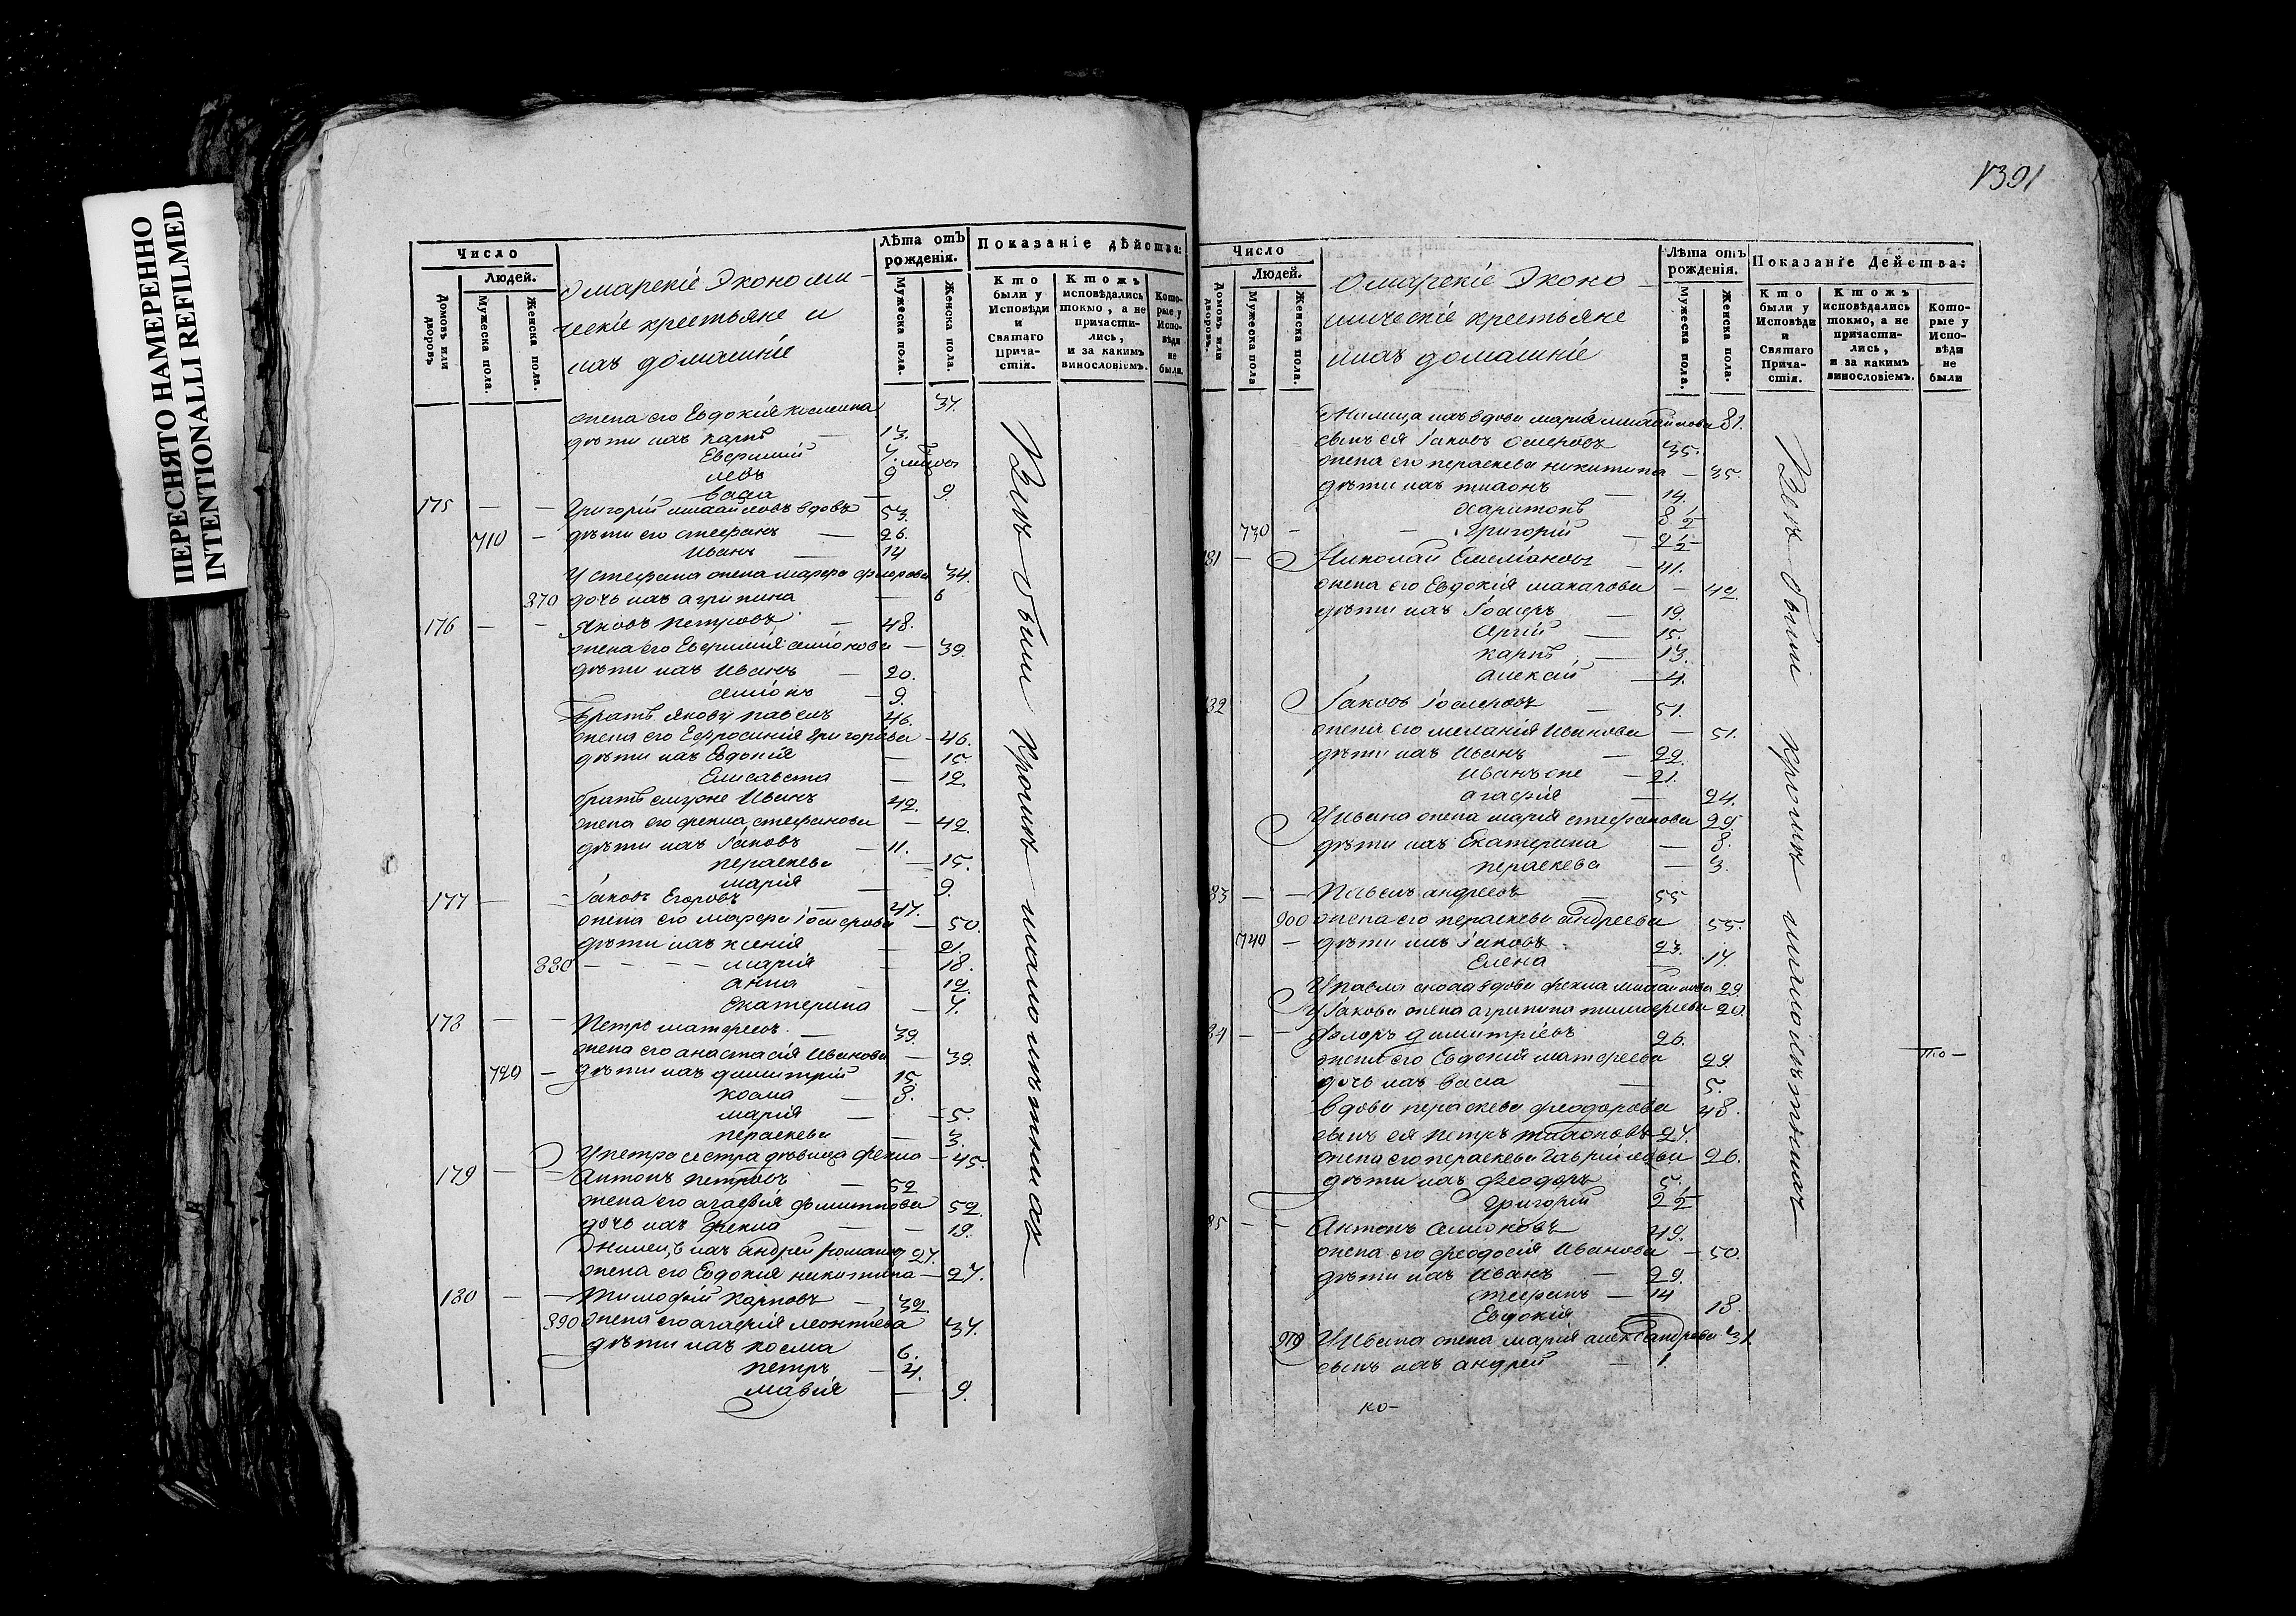 ПЕРЕСНЯТО НАМЕРЕННО
INTENTIONALLI REFILMED
Число
Людей.
Домовъ или дворовъ
Мужеска пола.
Женска пола.
Экономи-
ческіе крестьяне и
ихъ домашніе
Лѣта отъ рожденія.
Мужеска пола.
Женска пола.
Показаніе дѣйства:
Кто были у Исповѣди и Святаго Причастія.
Ктожъ исповѣдались токмо, а не причастились, и за какимъ винословіемъ.
Которые у Исповѣди не были.
жена его Евдокія 37.
дѣти ихъ Карпъ — 13.
Евфимій 7.
Левъ 9
Васса — 9.
175 — — Григорій Михайловъ вдовъ 53.
710 — дѣти его Стефанъ — 26.
Иванъ — 14
У Стефана жена Марфа Флорова 34.
870 дочь ихъ Агрипина — 6
176 — — Яковъ Петровъ — 48.
жена его Евфимія Симіонова — 39.
дѣти ихъ Иванъ — 20.
Симіонъ — 9.
братъ Якову Павелъ 46.
жена его Ефросинія Григорьева — 46.
дѣти ихъ Евдокія — 15.
Елисавета — 12.
братъ ему же Иванъ 42.
жена его Фекла Стефанова — 42.
дѣти ихъ Іаковъ — 11.
Пераскева — 15.
Марія — 9.
177 — — Іаковъ Егоровъ — 47.
жена его Марфа Іосифова — 50.
дѣти ихъ Ксенія — 21.
880 — — — — Марія — 18.
Анна — 12.
Екатерина — 7.
178 — — Петръ Матфеевъ — 39.
жена его Анастасія Иванова — 39.
720 — дѣти ихъ Димитрій 15
Косма — 8.
Марія — 5.
Пераскева — 3.
У Петра сестра дѣвица Фекла — 45.
179 — — Антонъ Петровъ — 52
жена его Агафія 52.
дочь ихъ Фекла — — 19.
Жилецъ ихъ Андрей Романовъ 27.
жена его Евдокія Никитина — 27.
180 — — Тимофей Карповъ — 32.
890 жена его Агафія Леонтіева 37.
дѣти ихъ Косма 6.
Петръ — 4.
Марія — 9.
Всѣ были кромѣ малолѣтнихъ
1391
Число
Людей.
Домовъ или дворовъ.
Мужеска пола
Женска пола.
Эконо-
мическіе крестьяне
ихъ домашніе
Лѣта отъ рожденія.
Мужеска пола.
Женска пола.
Показаніе Действа:
Кто были у Исповѣди и Святаго Причастія.
Ктожъ исповѣдались токмо, а не причастились, и за какимъ винословіемъ.
Которые у Исповѣди не были
Жилица ихъ вдова Марія Михайлова 81.
сынъ ея Іаковъ 35.
жена его Пераскева Никитина — 35.
дѣти ихъ Тихонъ — 14.
Харитонъ 8 1/2
730 — — Григорій — 2 1/2
81 — Николай Емеліановъ — 41.
жена его Евдокія Макарова — 42.
дѣти ихъ Іосифъ — 19.
Сергій — 15.
Карпъ — 13.
Алексій — 4.
82 Іаковъ Іосифовъ — 51.
жена его Меланія Иванова — 51.
дѣти ихъ Иванъ — 22.
Иванъ же — 21.
Агафія — 24.
У Ивана жена Марія Стефанова 29.
дѣти ихъ Екатерина — 8.
Пераскева — 3.
83 — — Павелъ Андреевъ — 55
900 жена его Пераскева Андреева 55.
740 — дѣти ихъ Іаковъ 23.
Елена — 17.
У Павла сноха вдова Фекла Михайлова 29.
У Іакова жена Агрипина Тимофеева 20.
84 — Флоръ Димитріевъ 26.
жена его Евдокія Матфеева 29.
дочь ихъ Васса — 5.
вдова Пераскева Феодорова 48.
сынъ ея Петръ Тихоновъ 27.
жена его Пераскева Гавріилова 26.
дѣти ихъ Феодоръ 5.
Григорій 2 1/2
85 — — Антонъ Симіоновъ 49.
жена его Феодосія Иванова — 50.
дѣти ихъ Иванъ — 29.
Стефанъ — 14
Евдокія — 18.
910 У Ивана жена Марія Александрова 31.
сынъ ихъ Андрей — 1.
ко-
Всѣ были кромѣ малолѣтнихъ